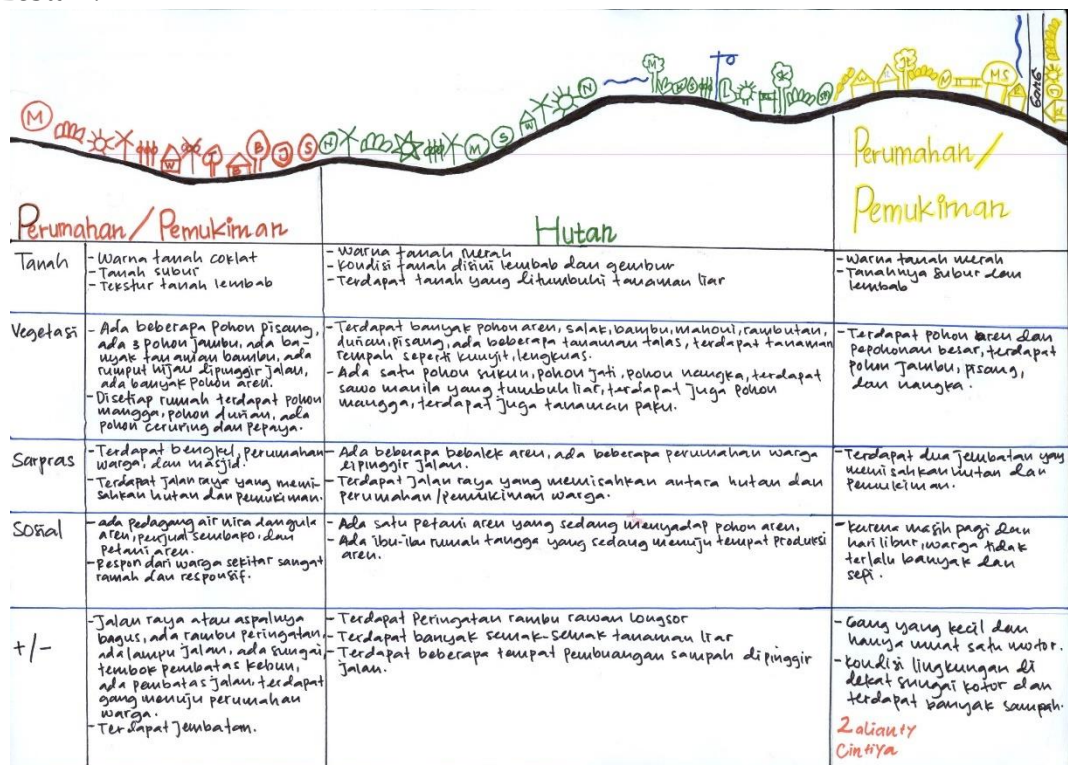 Perumahan / Pemukiman
Hutan
Perumahan /
Pemukiman
GANG
Tanah
- Warna tanah coklat
- Tanah subur
- Tekstur tanah lembab
- Warna tanah merah
- Kondisi tanah disini lembab dan gembur
- Terdapat tanah yang ditumbuhi tanaman liar
- Warna tanah merah
- Tanahnya subur dan
lembab
Vegetasi
- Ada beberapa Pohon pisang,
ada 3 pohon jambu, ada ba-
nyak tanaman bambu, ada
rumput hijau dipinggir jalan,
ada banyak pohon aren.
- Disetiap rumah terdapat pohon
mangga, pohon durian, ada
pohon ceruring dan pepaya.
- Terdapat banyak pohon aren, salak, bambu, mahoni, rambutan,
durian, pisang, ada beberapa tanaman talas, terdapat tanaman
rempah seperti kunyit, lengkuas.
- Ada satu pohon sukun, pohon jati, pohon nangka, terdapat
sawo manila yang tumbuh liar, terdapat juga pohon
mangga, terdapat juga tanaman paku.
- Terdapat pohon aren dan
pepohonan besar, terdapat
pohon jambu, pisang,
dan nangka.
Sarpras
- Terdapat bengkel, perumahan
warga, dan masjid.
- Terdapat jalan raya yang memi-
sahkan hutan dan pemukiman.
- Ada beberapa bebalek aren, ada beberapa perumahan warga
dipinggir jalan.
- Terdapat jalan raya yang memisahkan antara hutan dan
perumahan/pemukiman warga.
- Terdapat dua jembatan yang
memisahkan hutan dan
pemukiman.
Sosial
- ada pedagang air nira dan gula
aren, penjual sembako, dan
petani aren.
- Respon dari warga sekitar sangat
ramah dan responsif.
- Ada satu petani aren yang sedang menyadap pohon aren.
- Ada ibu-ibu rumah tangga yang sedang menuju tempat produksi
aren.
- karena masih pagi dan
hari libur, warga tidak
terlalu banyak dan
sepi.
+/-
- Jalan raya atau aspalnya
bagus, ada rambu peringatan,
ada lampu jalan, ada sungai,
tembok pembatas kebun,
ada pembatas jalan, terdapat
gang menuju perumahan
warga.
- Terdapat jembatan.
- Terdapat Peringatan rambu rawan longsor
- Terdapat banyak semak-semak tanaman liar
- Terdapat beberapa tempat pembuangan sampah dipinggir
jalan.
- Gang yang kecil dan
hanya muat satu motor.
- kondisi lingkungan di
dekat sungai kotor dan
terdapat banyak sampah.
Zalianty
Cintiya